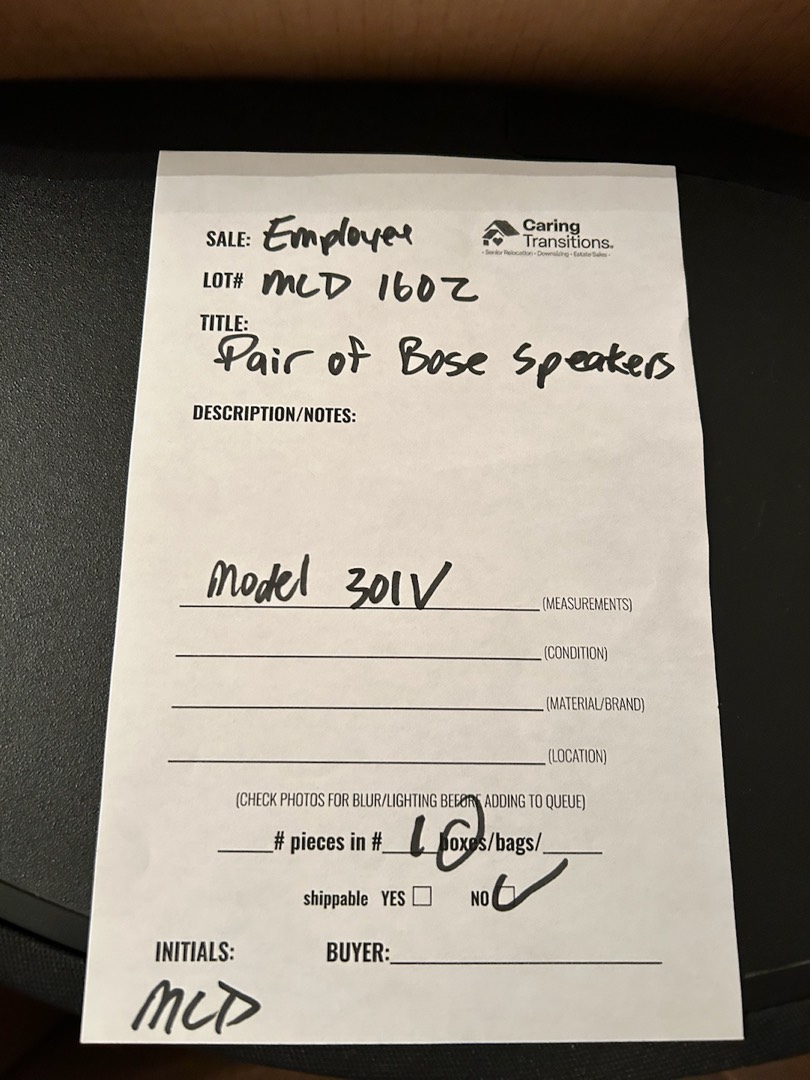 SALE: Employee
Caring
Transitions®
- Senior Relocation - Downsizing - Estate Sales -
LOT# MCD 1602
TITLE:
Pair of Bose Speakers
DESCRIPTION/NOTES:
Model 301V (MEASUREMENTS)
(CONDITION)
(MATERIAL/BRAND)
(LOCATION)
(CHECK PHOTOS FOR BLUR/LIGHTING BEFORE ADDING TO QUEUE)
# pieces in # 1 boxes/bags/
shippable YES ☐ NO ☑
INITIALS: BUYER:
MCD